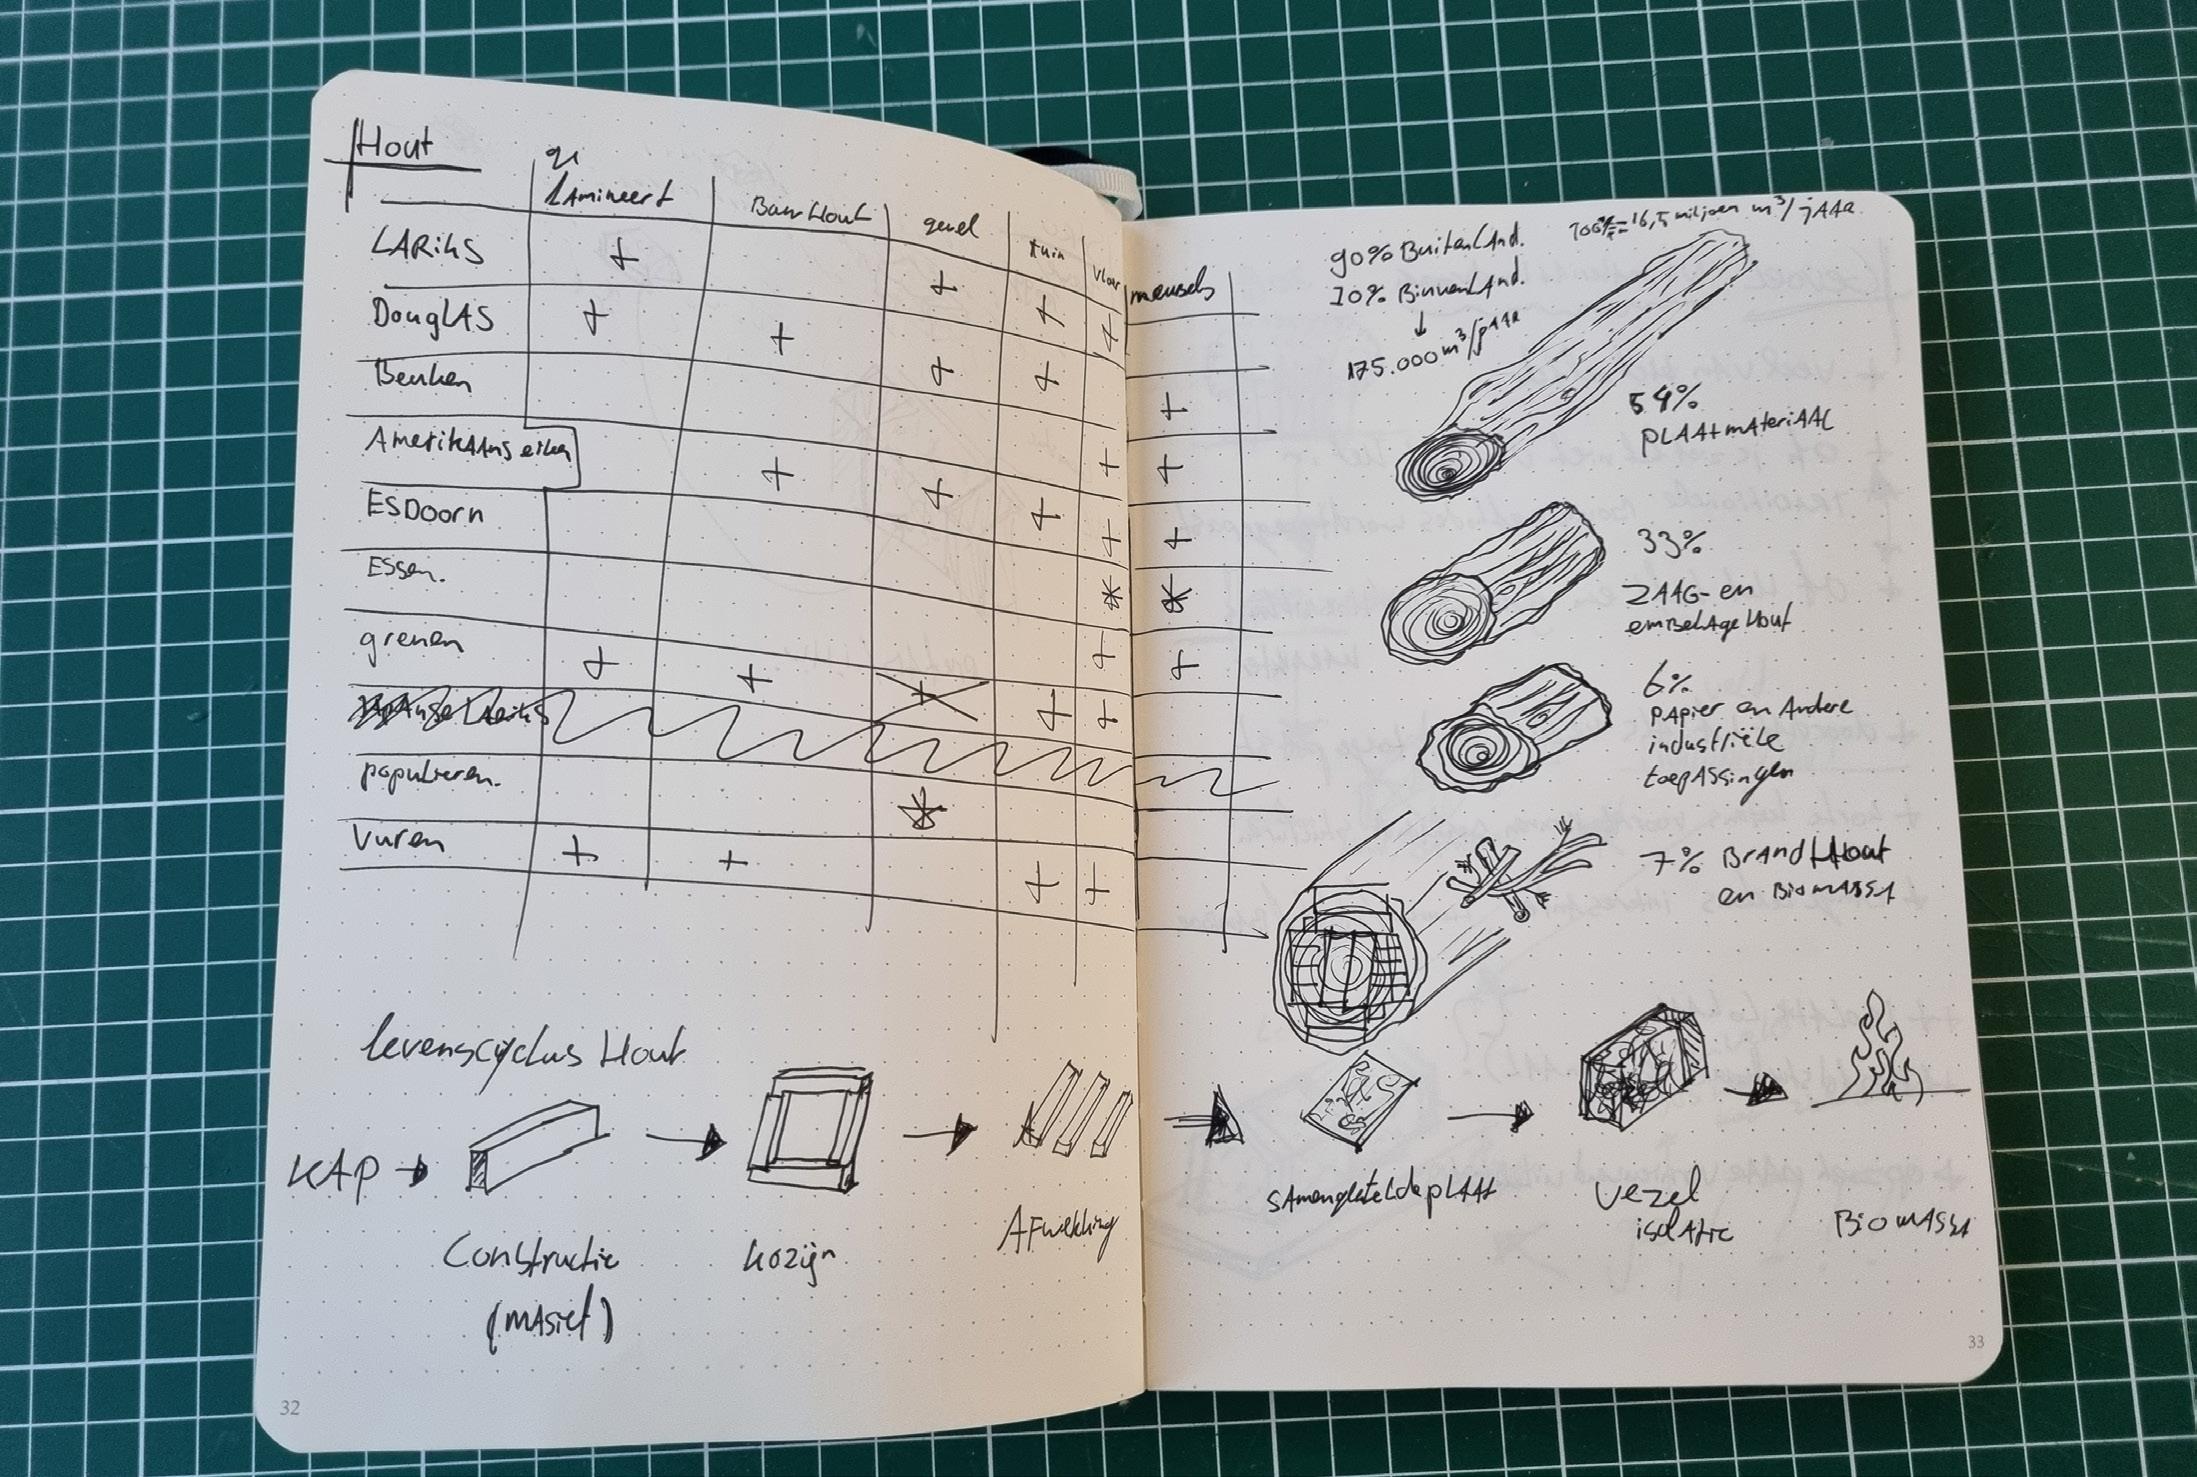 Hout
ge
lAmineert BouwHout gevel tuin vloer meubels
LARiks + + + +
DouglAS + + + +
Beuken + +
AmerikAAns eiken + + + + +
ESDoorn + +
Essen. * *
grenen + + + + +
populieren. *
Vuren + + + +
levenscyclus Hout
KAP
Constructie
(mAsief)
kozijn
AFwerking
32
100% = 16,5 miljoen m³/jAAR
90% BuitenlAnd.
10% BinnenlAnd.
↓
175.000 m³/jAAR
54%
plAAtmAteriAAl
33%
ZAAG- en
embelAge Hout
6%
pApier en Andere
industriële
toepAssingen
7% BrAndHout
en BiomAssA
vezel
isolAtie
BiomAssA
33